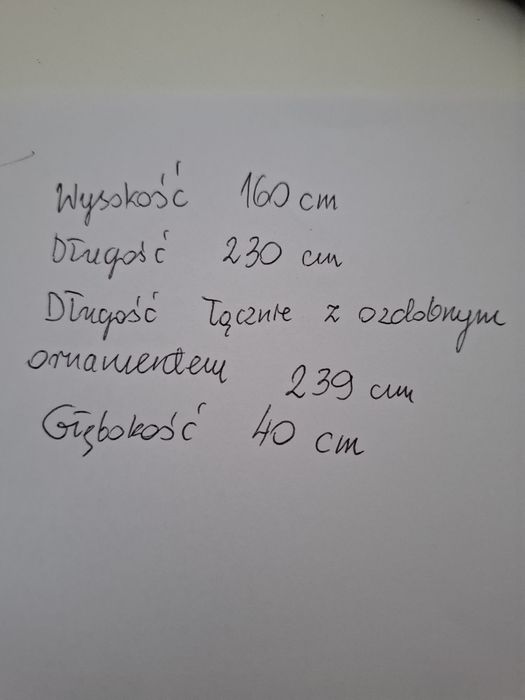 Wysokość 160 cm
Długość 230 cm
Długość łącznie z ozdobnym
ornamentem 239 cm
Głębokość 40 cm